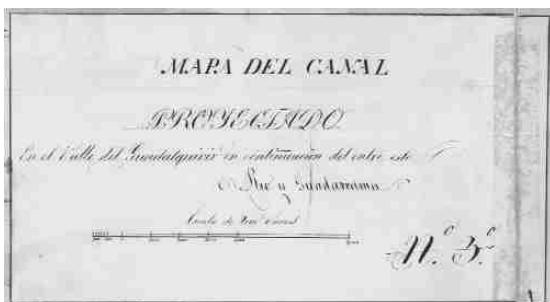 MAPA DEL CANAL
PROYECTADO
En el Valle del Guadalquivir en continuacion del entre este
Rio y Guadarrama
Escala de
N.º 5.º